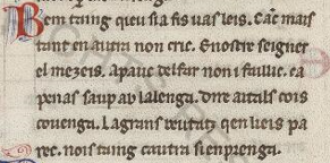 Bem taing qeu sia fis uas leis. Car mais
tant en autra non cric. E nostre seigner
el mezeis. A pauc del far non i faillic. ea
penas saup ab la lenga. dire aitals cois
couenga. La grans beutatz qen lieis pa
rec. nois taing cautra si enprenga.